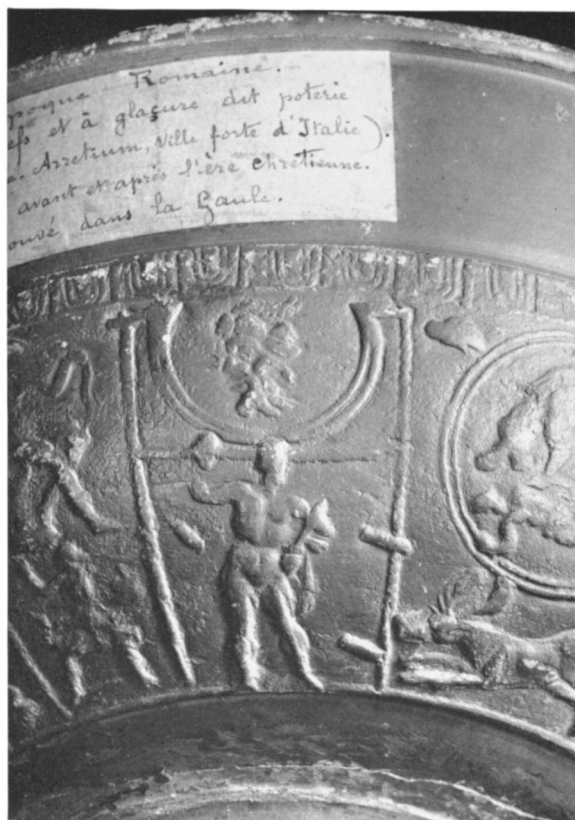 poque Romaine.
efs et à glaçure dit poterie
e. Arretium, ville forte d'Italie).
avant et après l'ère chrétienne.
ouvé dans la Gaule.